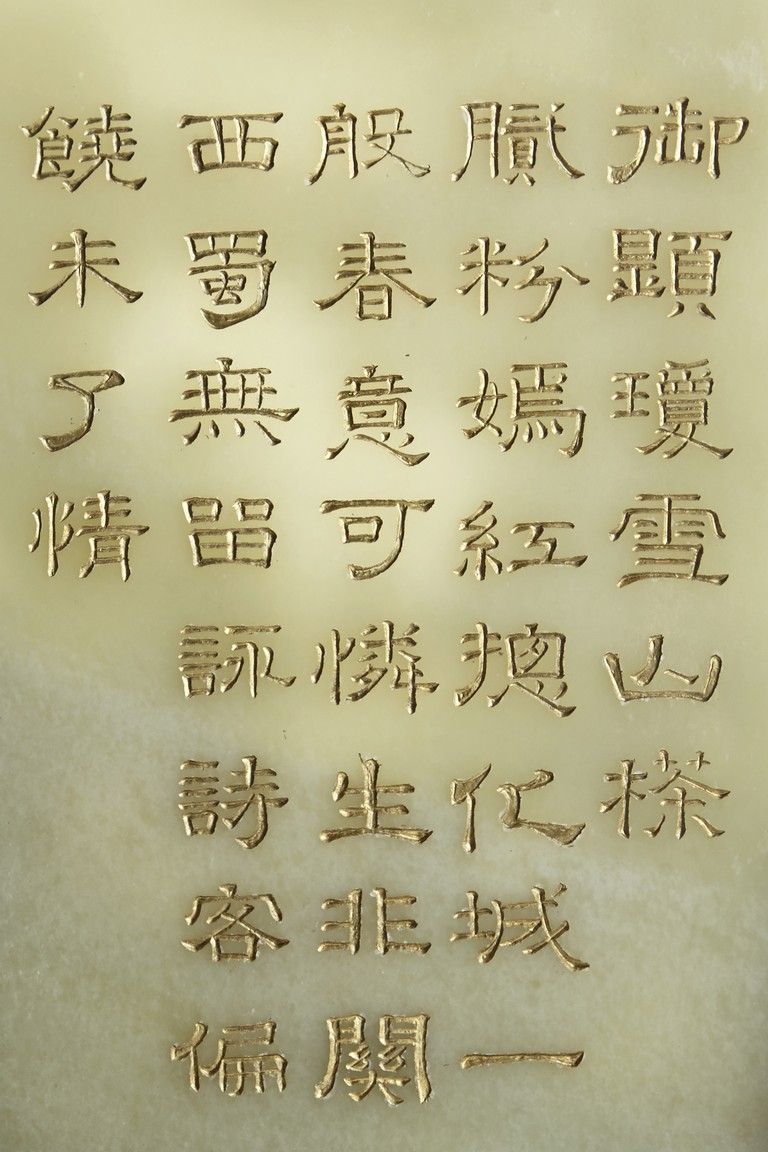 御題瓊雪山㮈
膩粉嫣紅揔化城一
般春意可憐生非關
西蜀無畱詠詩客偏
饒未了情